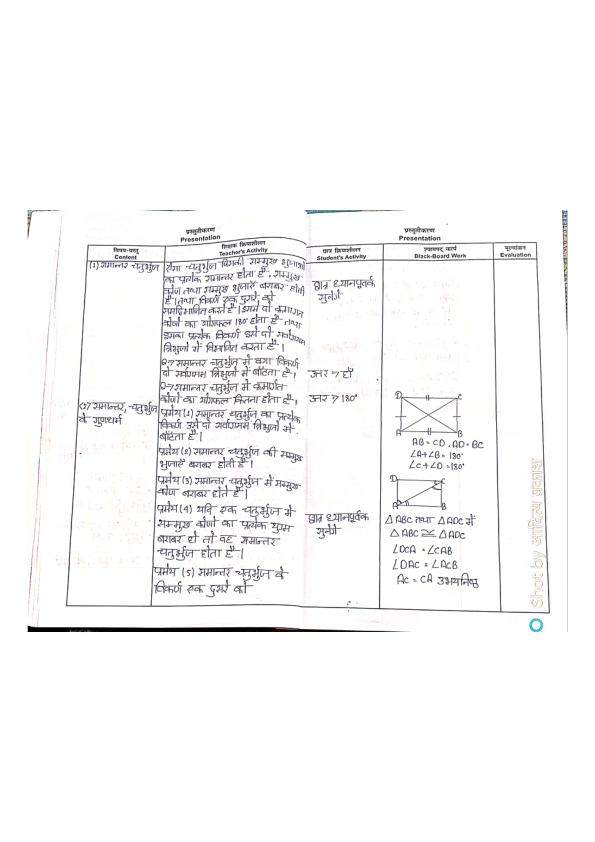 प्रस्तुतीकरण
Presentation
विषय-वस्तु
Content
शिक्षक क्रियाशीलन
Teacher's Activity
(1) समान्तर चतुर्भुज
ऐसा चतुर्भुज जिसकी सम्मुख भुजाओं
का प्रत्येक समान्तर होता है, सम्मुख
कोण तथा सम्मुख भुजाएँ बराबर होती
है। तथा विकर्ण एक दुसरे को
समद्विभाजित करते है। इसमें दो क्रमागत
कोणो का योगफल 180° होता है तथा
इसका प्रत्येक विकर्ण इसे दो सर्वांगसम
त्रिभुजो में विभाजित करता है।
Q→ समान्तर चतुर्भुज में क्या विकर्ण
दो सर्वांगसम त्रिभुजो में बाँटता है।
Q→ समान्तर चतुर्भुज में क्रमागत
कोणो का योगफल कितना होता है।
(2) समान्तर, चतुर्भुज
के गुणधर्म
प्रमेय (1) समान्तर चतुर्भुज का प्रत्येक
विकर्ण उसे दो सर्वांगसम त्रिभुजो में
बाँटता है।
प्रमेय (2) समान्तर चतुर्भुज की सम्मुख
भुजाएँ बराबर होती है।
प्रमेय (3) समान्तर चतुर्भुज में सम्मुख
कोण बराबर होते है।
प्रमेय (4) यदि एक चतुर्भुज में
सम्मुख कोणो का प्रत्येक युग्म
बराबर हो तो वह समान्तर
चतुर्भुज होता है।
प्रमेय (5) समान्तर चतुर्भुज के
विकर्ण एक दुसरे को
प्रस्तुतीकरण
Presentation
छात्र क्रियाशीलन
Student's Activity
श्यामपट् कार्य
Black-Board Work
मूल्यांकन
Evaluation
छात्र ध्यानपूर्वक
सुनेगे
उत्तर → हाँ
उत्तर → 180°
D C
A B
AB = CD, AD = BC
∠A+∠B = 180°
∠C+∠D = 180°
D C
A B
छात्र ध्यानपूर्वक
सुनेगे
△ABC तथा △ADC में
△ABC ≅ △ADC
∠DCA = ∠CAB
∠DAC = ∠ACB
AC = CA उभयनिष्ठ
Shot by आदित्य प्रकाश